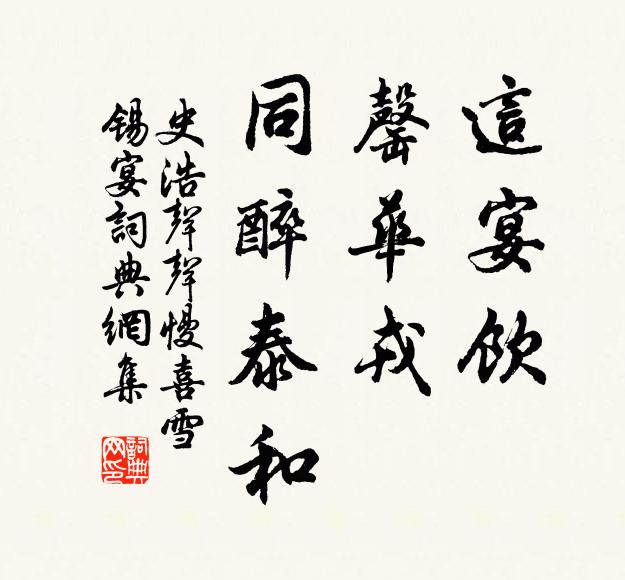 這宴飲
罄華戎
同醉泰和
史浩聲聲慢喜雪
錫宴詞典網集
詞典
网印